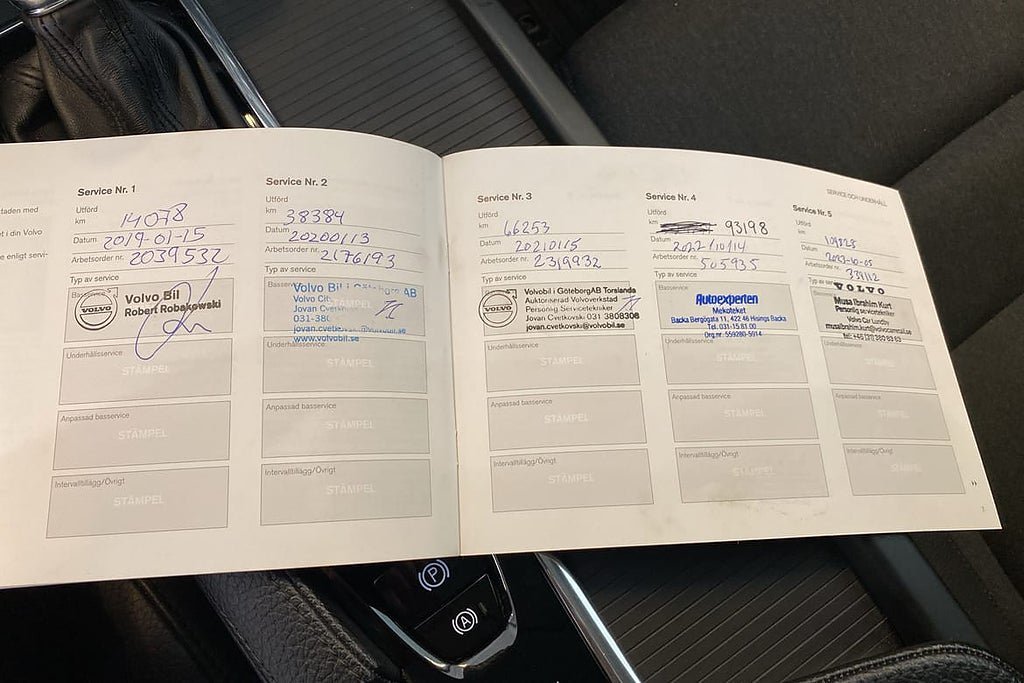 taden med
t i din Volvo
e enligt servi-
Service Nr. 1
Utförd
km 14078
Datum 2019-01-15
Arbetsorder nr. 2039532
Typ av service
VOLVO
Volvo Bil
Robert Robakowski
Underhållsservice
STÄMPEL
Anpassad basservice
STÄMPEL
Intervalltillägg/Övrigt
STÄMPEL
Service Nr. 2
Utförd
km 38384
Datum 20200113
Arbetsorder nr. 2176193
Typ av service
Volvo Bil i Göteborg AB
STÄMPEL
Volvo
Jovan
031-380
jovan.cvetkovski@volvobil.se
www.volvobil.se
Underhållsservice
STÄMPEL
Anpassad basservice
STÄMPEL
Intervalltillägg/Övrigt
STÄMPEL
SERVICE OCH UNDERHÅLL
Service Nr. 3
Utförd
km 66253
Datum 20210115
Arbetsorder nr. 2319932
Typ av service
VOLVO
Volvobil i GöteborgAB Torslanda
Auktoriserad Volvoverkstad
Personlig Servicetekniker
Jovan Cvetkovski 031 3808308
jovan.cvetkovski@volvobil.se
Underhållsservice
STÄMPEL
Anpassad basservice
STÄMPEL
Intervalltillägg/Övrigt
STÄMPEL
Service Nr. 4
Utförd
km 93198
Datum 2022/10/14
Arbetsorder nr. 505935
Typ av service
Basservice
Autoexperten
Mekoteket
Backa Bergögata 11, 422 46 Hisings Backa
Tel. 031-15 81 00
Org.nr. 559280-5914
Underhållsservice
STÄMPEL
Anpassad basservice
STÄMPEL
Intervalltillägg/Övrigt
STÄMPEL
Service Nr. 5
Utförd
km
Datum 2023-10-05
Arbetsorder nr. 339112
Typ av
VOLVO
Musa Ibrahim Kurt
Personlig servicetekniker
Volvo Car Lundby
Underhållsservice
STÄMPEL
Anpassad basservice
STÄMPEL
Intervalltillägg/Övrigt
STÄMPEL
P
A